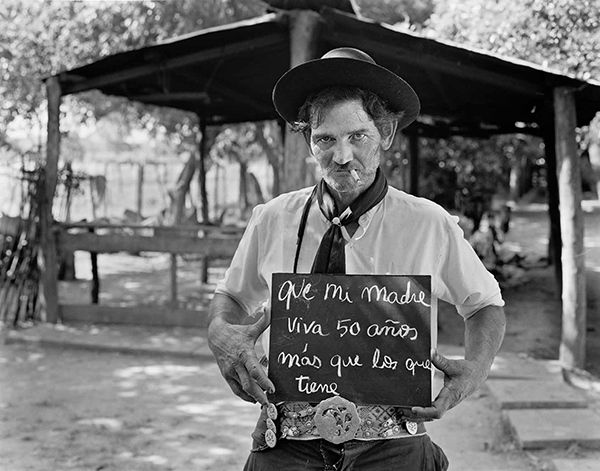 que mi madre
viva 50 años
más que los que
tiene